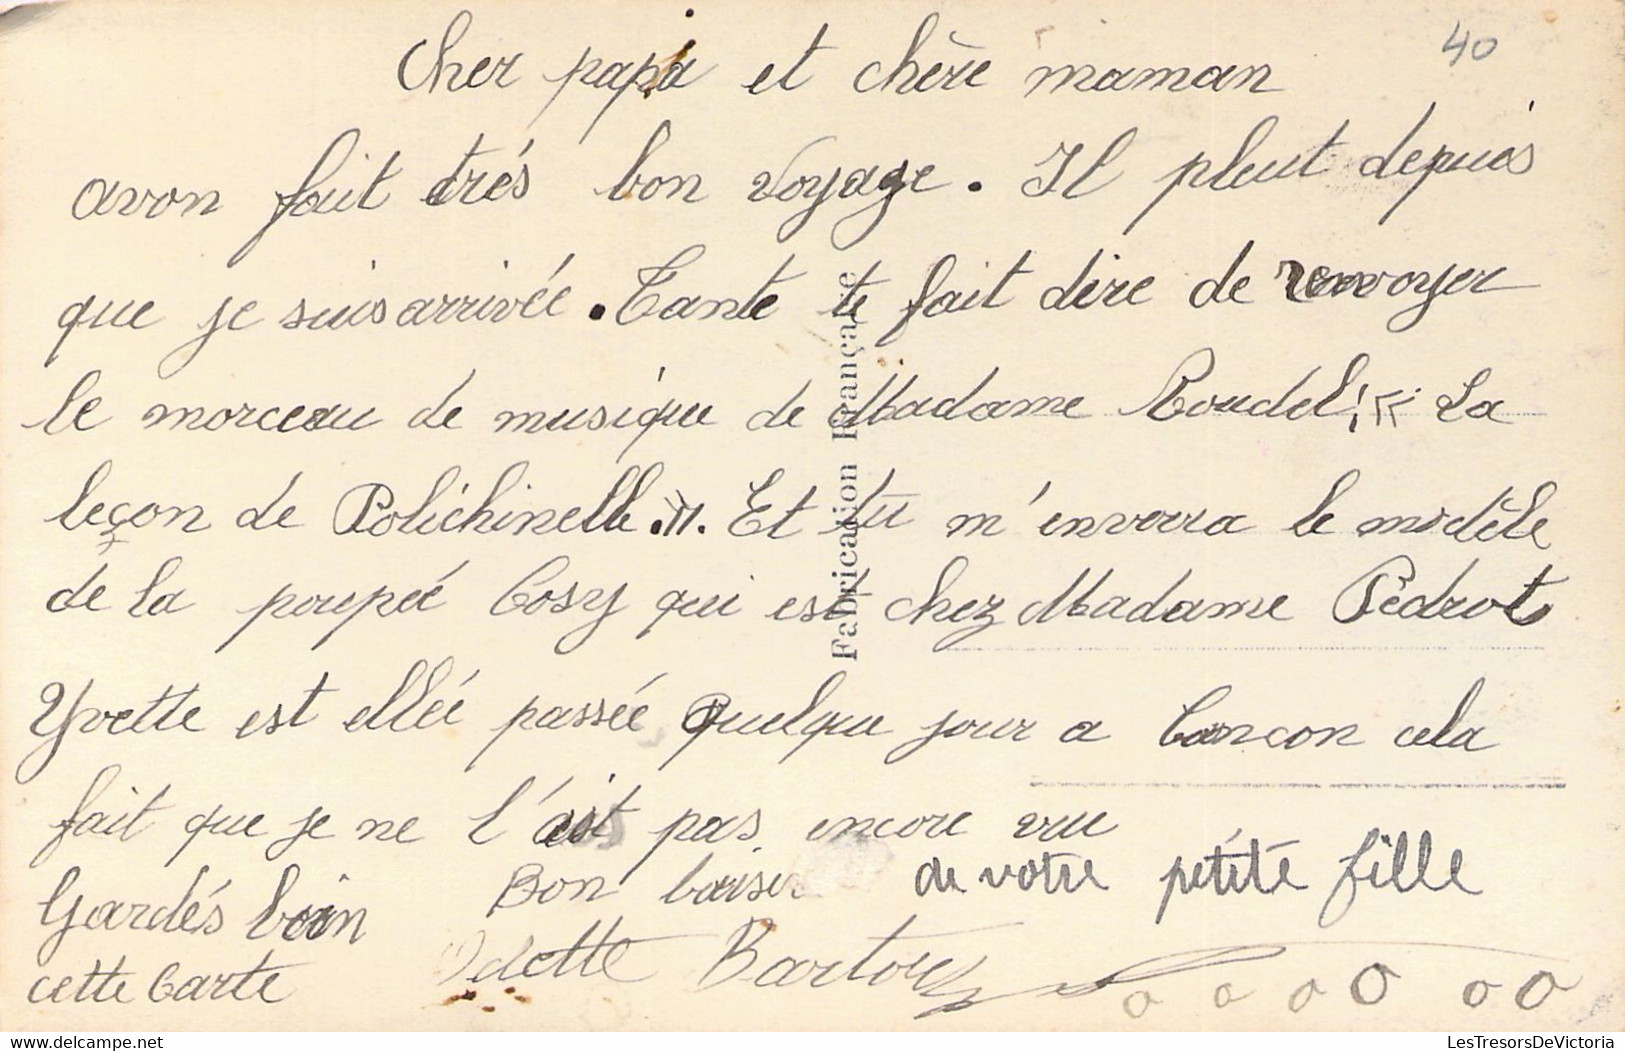 40
Cher papa et chère maman
avon fait trés bon voyage. Il pleut depuis
que je suis arrivée. Tante te fait dire de renvoyer
le morceau de musique de Madame Roudel " La
leçon de Polichinelle.". Et tu m'enverra le modèle
de la poupée Cosy qui est chez Madame Pedrot
Yvette est ellée passée quelque jour a Cancon cela
fait que je ne l'ait pas encore vue
Bon baiser de votre petite fille
Gardés bien
cette Carte
Odette
Fabrication Française
www.delcampe.net
LesTresorsDeVictoria